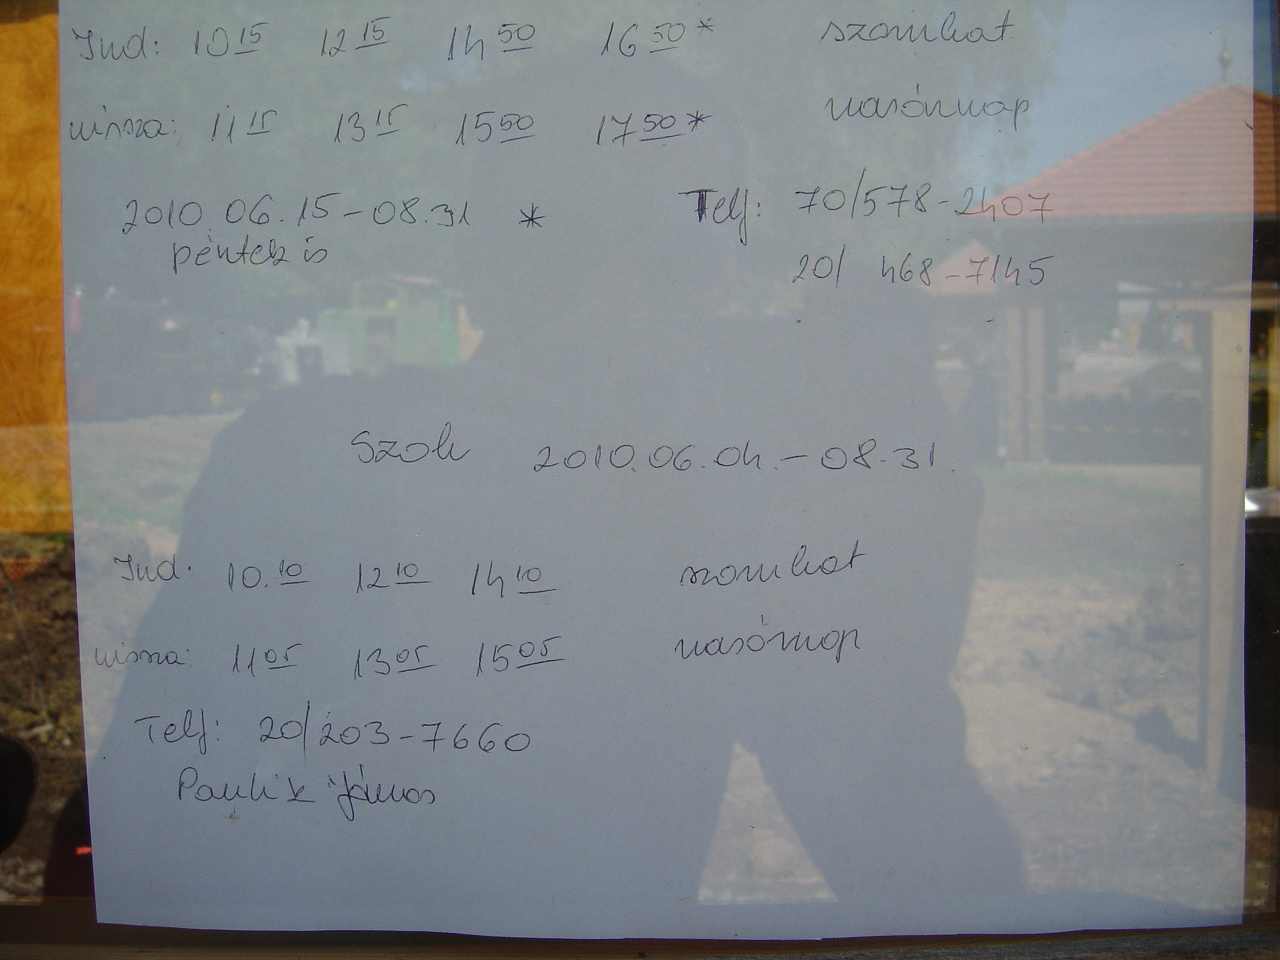 Ind: 10 15 12 15 14 50 16 50 * szombat
vissza: 11 15 13 15 15 50 17 50 * vasárnap
2010.06.15-08.31 * Telf: 70/578-2407
péntek is 20/ 468-7145
Szob 2010.06.04.-08.31.
Ind. 10.10 12 10 14 10 szombat
vissza: 11 05 13 05 15 05 vasárnap
Telf: 20/203-7660
Paulik János